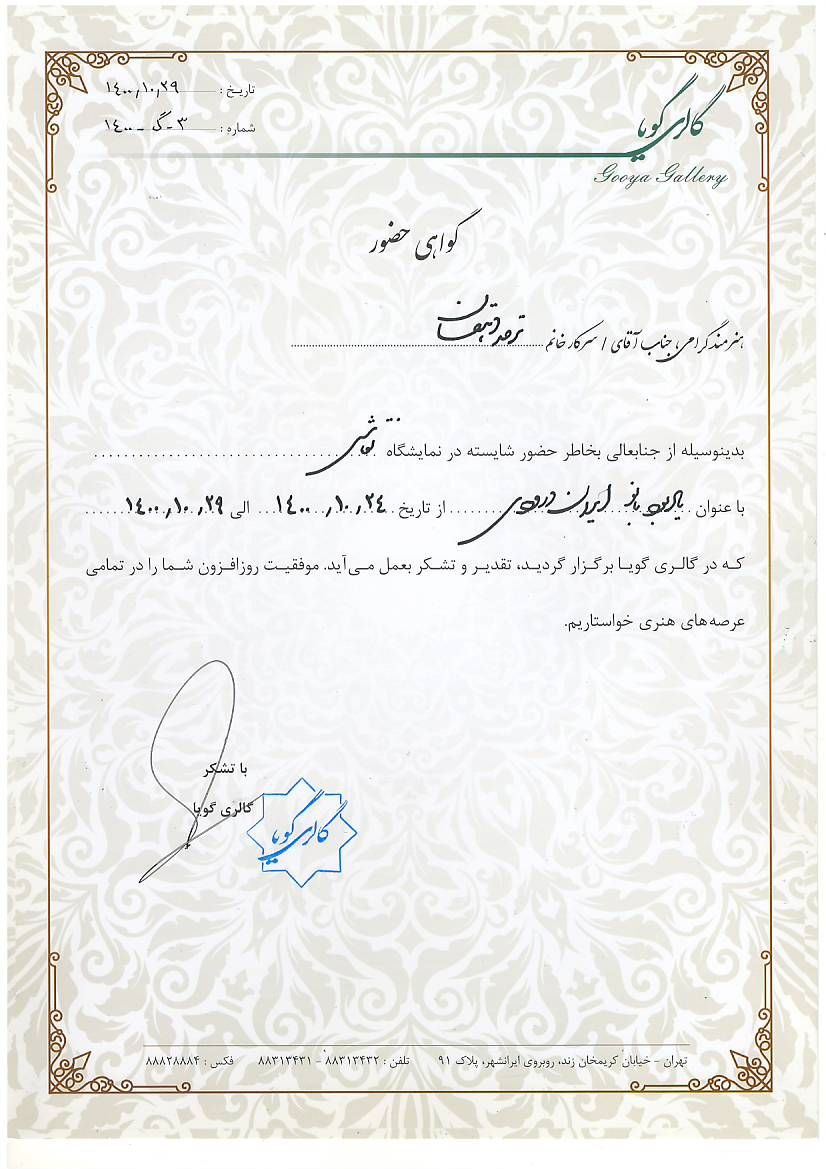 تاریخ : ۱۴۰۰,۱۰,۲۹
شماره : ۳-گ-۱۴۰۰
گالری گویا
Gooya Gallery
گواهی حضور
هنرمند گرامی، جناب آقای / سرکار خانم دهقان
بدینوسیله از جنابعالی بخاطر حضور شایسته در نمایشگاه نقاشی
با عنوان یادبود بانو ایران درودی از تاریخ ۱۴۰۰,۱۰,۲۴ الی ۱۴۰۰,۱۰,۲۹
که در گالری گویا برگزار گردید، تقدیر و تشکر بعمل می‌آید. موفقیت روزافزون شما را در تمامی
عرصه‌های هنری خواستاریم.
با تشکر
گالری گویا
گالری گویا
تهران - خیابان کریمخان زند، روبروی ایرانشهر، پلاک ۹۱ تلفن : ۸۸۳۱۳۴۳۲ - ۸۸۳۱۳۴۳۱ فکس : ۸۸۸۲۸۸۸۴